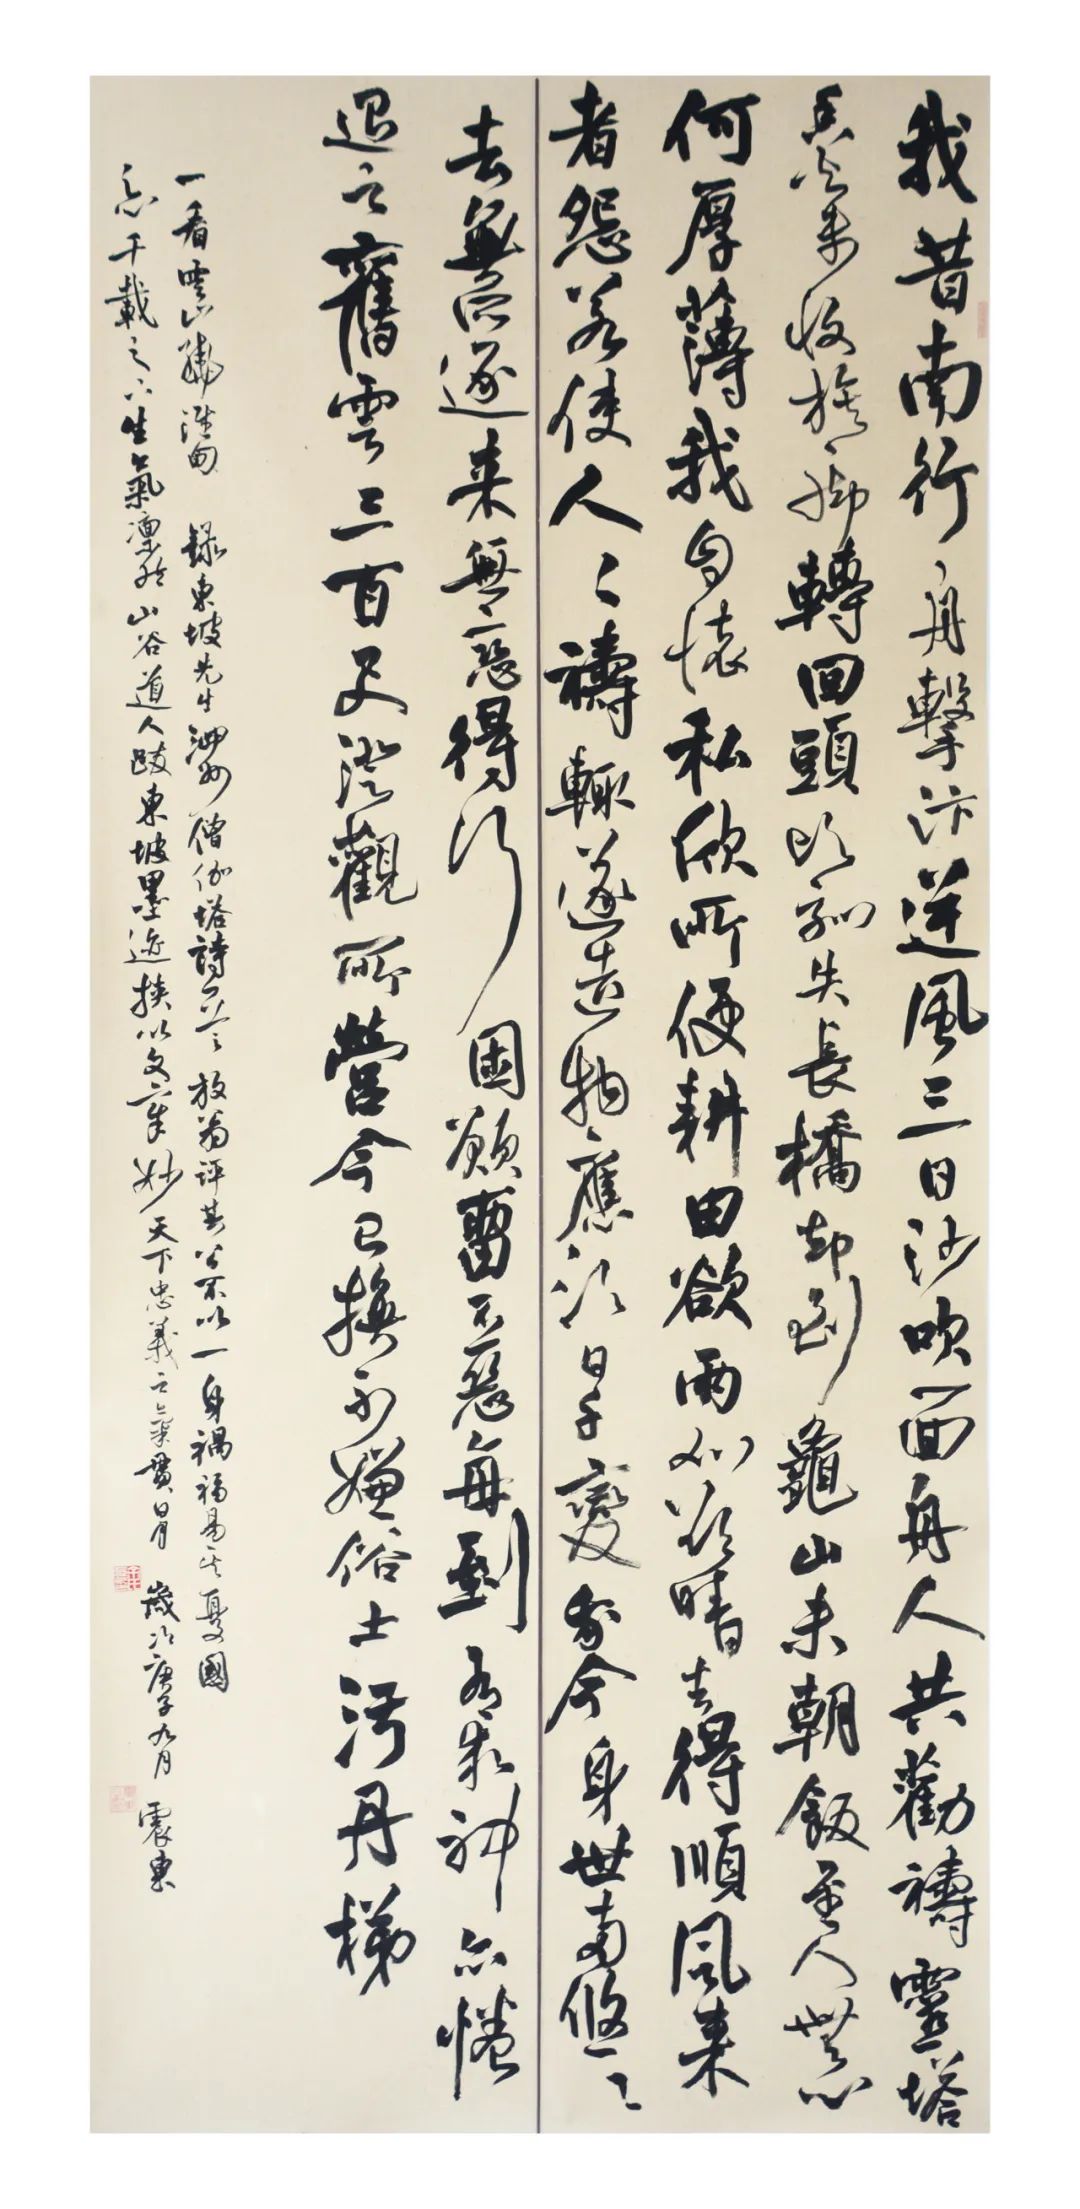 我昔南行舟擊汴逆風三日沙吹面舟人共勸禱靈塔
香火未收旂脚轉回頭頃刻失長橋却到龜山未朝飯至人無心
何厚薄我自懷私欣所便耕田欲雨刈欲晴去得順風来
者怨若使人〻禱輒遂造物應須日千變今我身世兩悠〻
去無所逐来無戀得行固願留不惡每到有求神亦惓
退之舊雲三百尺澄觀所營今已換不嫌俗士污丹梯
一看雲山繞淮甸 録東坡先生泗州僧伽塔詩 放翁評其公不以一身禍福易其憂國
之心千載之下生氣凛然山谷道人跋東坡墨迹挟以文章妙天下忠義之氣貫日月 歲次庚子九月 震東